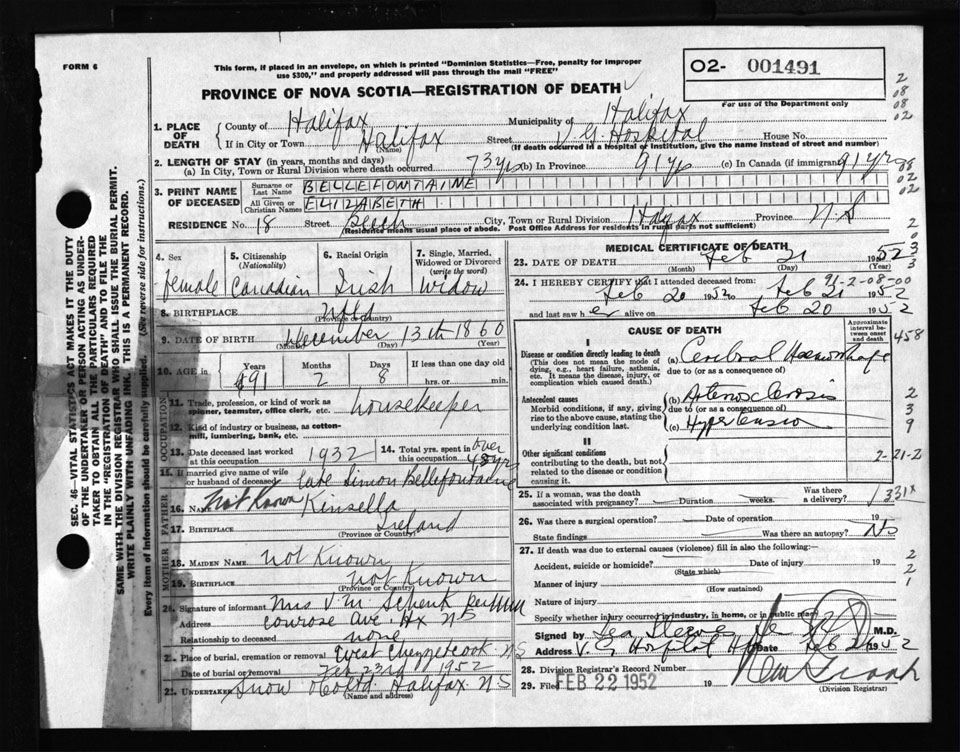 FORM 6
This form, if placed in an envelope, on which is printed "Dominion Statistics—Free, penalty for improper
use $300," and properly addressed will pass through the mail "FREE"
O2- 001491
For use of the Department only
PROVINCE OF NOVA SCOTIA—REGISTRATION OF DEATH
1. PLACE OF DEATH
County of Halifax Municipality of Halifax
If in City or Town Halifax Street V.G. Hospital House No.
(Name) (If death occurred in a hospital or institution, give the name instead of street and number)
2. LENGTH OF STAY (in years, months and days)
(a) In City, Town or Rural Division where death occurred 73 yrs (b) In Province 91 yrs (c) In Canada (if immigrant) 91 yrs
3. PRINT NAME OF DECEASED
Surname or Last Name BELLEFONTAINE
All Given or Christian Names ELIZABETH
RESIDENCE No. 18 Street Beech City, Town or Rural Division Halifax Province N.S
(Residence means usual place of abode. Post Office Address for residents in rural parts not sufficient)
4. Sex female
5. Citizenship (Nationality) Canadian
6. Racial Origin Irish
7. Single, Married, Widowed or Divorced (write the word) Widow
8. BIRTHPLACE Nfld
(Province or Country)
9. DATE OF BIRTH December 13th 1860
(Month) (Day) (Year)
10. AGE in Years 91 Months 2 Days 8 If less than one day hrs. or min.
OCCUPATION
11. Trade, profession, or kind of work as spinner, teamster, office clerk, etc. housekeeper
12. Kind of industry or business, as cotton-mill, lumbering, bank, etc.
13. Date deceased last worked at this occupation 1932
14. Total yrs. spent in this occupation over 45 yrs
15. If married give name of wife or husband of deceased late Simon Bellefontaine
FATHER
16. NAME Not Known Kinsella
17. BIRTHPLACE Ireland
(Province or Country)
MOTHER
18. MAIDEN NAME not Known
19. BIRTHPLACE not Known
(Province or Country)
20. Signature of informant Mrs V. M. Schenk
Address Conrose Ave. Hx NS
Relationship to deceased none
21. Place of burial, cremation or removal West Chezzetcook NS
Date of burial or removal Feb 23rd 1952
22. UNDERTAKER Snow & Co Ltd. Halifax NS
(Name and address)
MEDICAL CERTIFICATE OF DEATH
23. DATE OF DEATH Feb 21 1952
(Month) (Day) (Year)
24. I HEREBY CERTIFY that I attended deceased from:
Feb 20 1952 to Feb 21 1952
and last saw her alive on Feb 20 1952
91-2-08-00
CAUSE OF DEATH
Approximate interval between onset and death
I
Disease or condition directly leading to death
(This does not mean the mode of dying, e.g., heart failure, asthenia, etc. It means the disease, injury, or complication which caused death.)
(a) Cerebral Haemorrhage
due to (or as a consequence of)
Antecedent causes
Morbid conditions, if any, giving rise to the above cause, stating the underlying condition last.
(b) Arteriosclerosis
due to (or as a consequence of)
(c) Hypertension
II
Other significant conditions
contributing to the death, but not related to the disease or condition causing it.
25. If a woman, was the death associated with pregnancy? Duration weeks. Was there a delivery?
26. Was there a surgical operation? Date of operation 19
State findings Was there an autopsy? No
27. If death was due to external causes (violence) fill in also the following:—
Accident, suicide or homicide? Date of injury 19
(State which)
Manner of injury
(How sustained)
Nature of injury
Specify whether injury occurred in industry, in home, or in public place
Signed by M.D.
Address V. G. Hospital Hx Date Feb 21 1952
28. Division Registrar's Record Number
29. Filed FEB 22 1952 19
(Division Registrar)
458
2-21-2
331x
SEC. 46—VITAL STATISTICS ACT MAKES IT THE DUTY
OF THE UNDERTAKER OR PERSON ACTING AS UNDERTAKER TO OBTAIN ALL THE PARTICULARS REQUIRED
IN THE "REGISTRATION OF DEATH" AND TO FILE THE
SAME WITH THE DIVISION REGISTRAR WHO SHALL ISSUE THE BURIAL PERMIT.
WRITE PLAINLY WITH UNFADING INK. THIS IS A PERMANENT RECORD.
Every item of information should be carefully supplied. (See reverse side for instructions.)